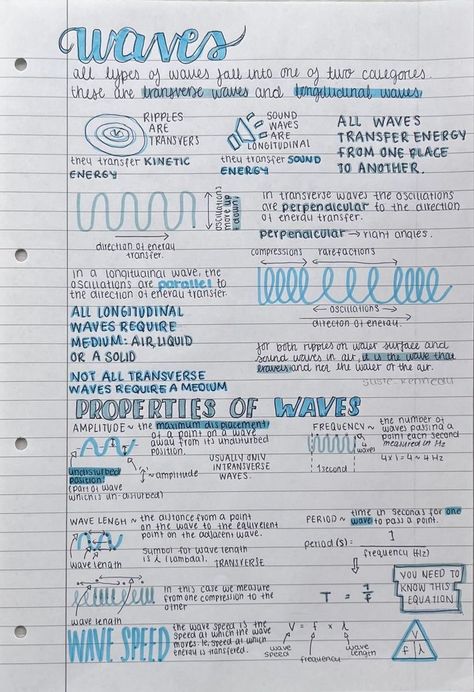 waves
all types of waves fall into one of two categories.
these are transverse waves and longitudinal waves
RIPPLES
ARE
TRANSVERS
they transfer KINETIC
ENERGY
SOUND
WAVES
ARE
LONGITUDINAL
they transfer SOUND
ENERGY
ALL WAVES
TRANSFER ENERGY
FROM ONE PLACE
TO ANOTHER.
oscillations
move up
+ down.
direction of energy
transfer.
in transverse waves the oscillations
are perpendicular to the direction
of energy transfer.
perpendicular → right angles.
in a longitudinal wave, the
oscillations are parallel to
the direction of energy transfer.
compressions rarefactions
oscillations
direction of energy.
ALL LONGITUDINAL
WAVES REQUIRE
MEDIUM: AIR, LIQUID
OR A SOLID
NOT ALL TRANSVERSE
WAVES REQUIRE A MEDIUM
for both ripples on water surface and
sound waves in air, it is the wave that
travels and not the water or the air.
PROPERTIES OF WAVES
AMPLITUDE ~ the maximum displacement
of a point on a wave
away from its undisturbed
position.
undisturbed
position
(part of wave
which is un-disturbed)
~ amplitude
USUALLY ONLY
IN TRANSVERSE
WAVES.
FREQUENCY ~ the number of
waves passing a
point each second
measured in Hz
waves
1 second
4 x 1 = 4 ~ 4Hz
WAVE LENGH ~ the distance from a point
on the wave to the equivelent
point on the adjacent wave.
wave length
symbol for wave length
is λ (lambda).
TRANSVERSE
in this case we measure
from one compression to the
other
wave length
PERIOD ~ time in seconds for one
wave to pass a point.
period (s) = 1
frequency (Hz)
T = 1
f
YOU NEED TO
KNOW THIS
EQUATION!
WAVE SPEED
the wave speed is the
speed at which the wave
moves. ie, speed at which
energy is transfered.
V = f x λ
wave
speed
frequency
wave
length
V
f λ